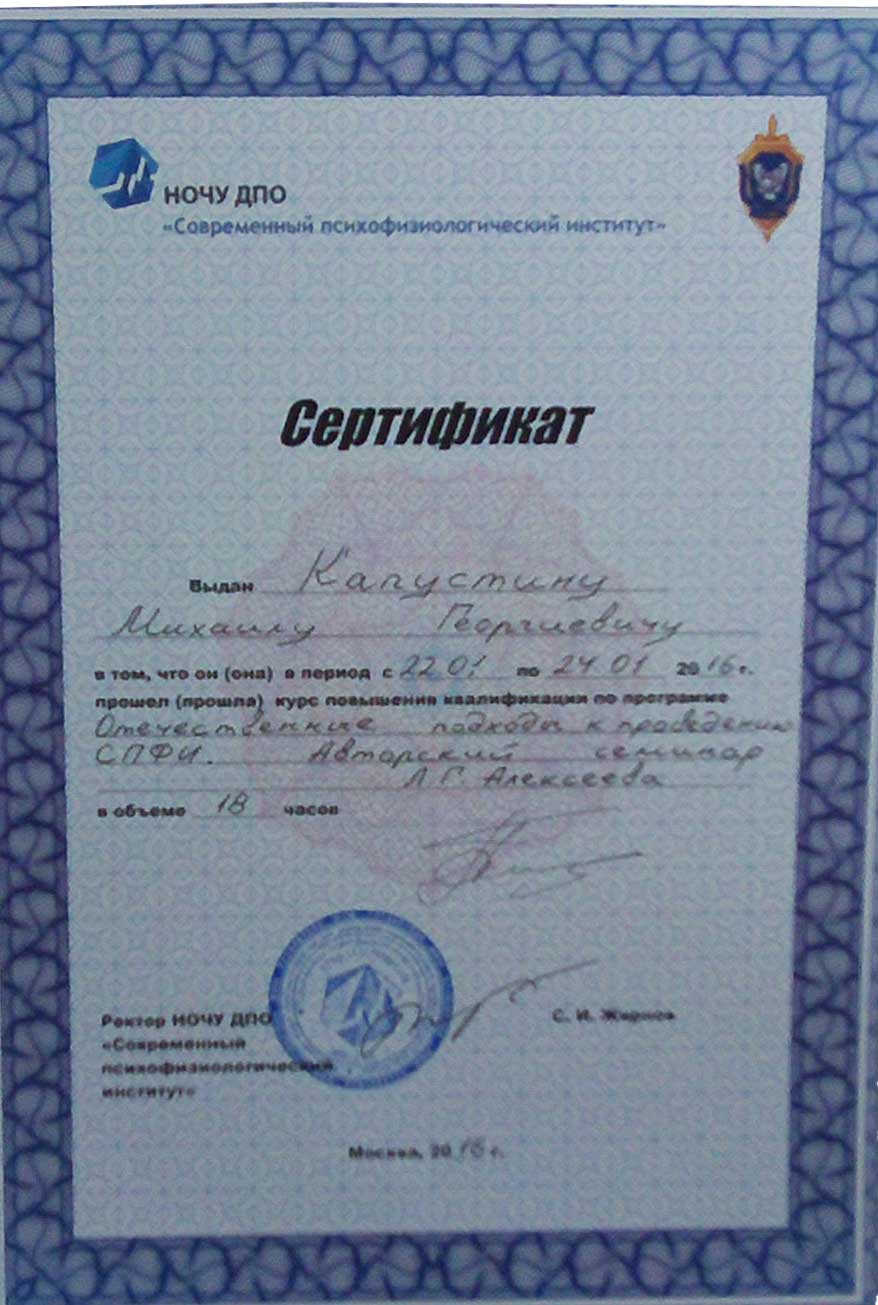 НОЧУ ДПО
«Современный психофизиологический институт»
Сертификат
Выдан Капустину
Михаилу Георгиевичу
в том, что он (она) в период с 22 01 по 24 01 2016 г.
прошел (прошла) курс повышения квалификации по программе
Отечественные подходы к проведению
СПФИ. Авторский семинар
Л.Г. Алексеева
в объеме 18 часов
Ректор НОЧУ ДПО
«Современный
психофизиологический
институт»
С. И.
Москва, 2016 г.